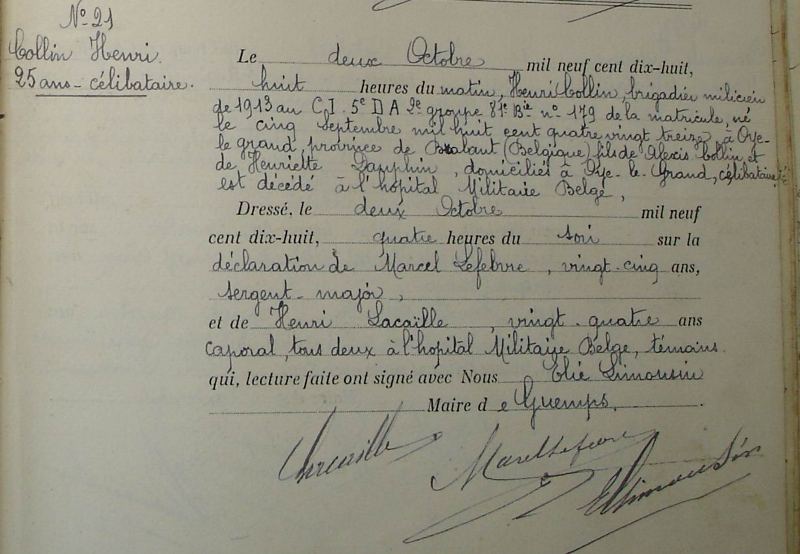 N° 21
Collin Henri.
25 ans - célibataire.
Le deux Octobre mil neuf cent dix-huit,
huit heures du matin, Henri Collin, brigadier milicien
de 1913 au C.I. 5e D A 2e groupe 81e Bie n° 179 de la matricule, né
le cinq septembre mil huit cent quatre vingt treize, à Orp-
le grand, province de Brabant (Belgique) fils de Alexis Collin et
de Henriette Dauphin, domiciliés à Orp-le-Grand, célibataire
est décédé à l'hôpital Militaire Belge,
Dressé, le deux Octobre mil neuf
cent dix-huit, quatre heures du soir sur la
déclaration de Marcel Lefebvre, vingt-cinq ans,
sergent-major,
et de Henri Lacaille, vingt-quatre ans
caporal, tous deux à l'hopital Militaire Belge, témoins
qui, lecture faite ont signé avec Nous Elie Limousin
Maire de Guemps.
Lacaille Marcel Lefebvre E Limousin